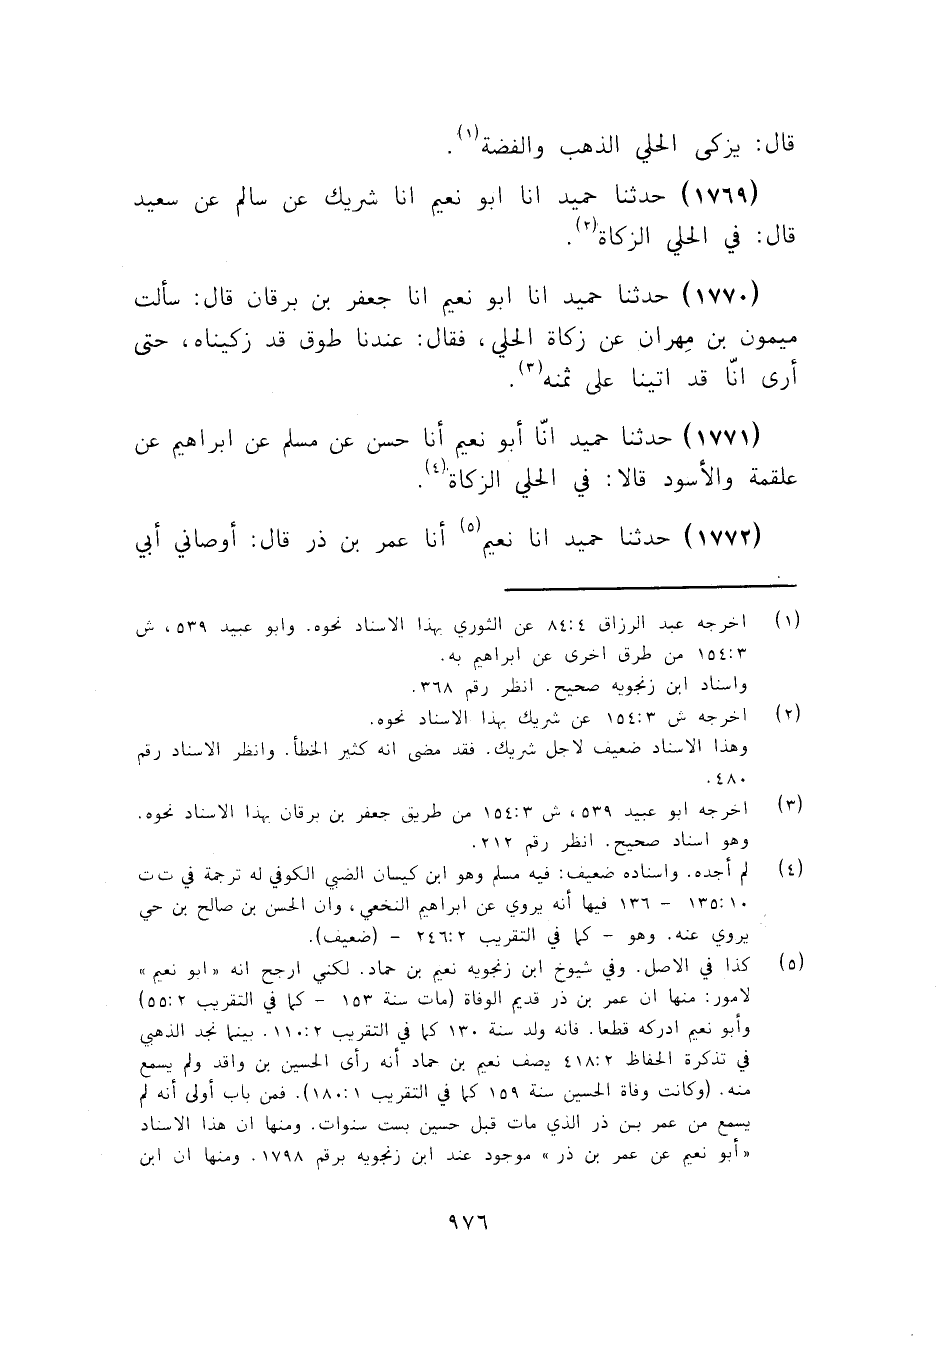 قال: يزكى الحلي الذهب والفضة(١).
(١٧٦٩) حدثنا حميد انا ابو نعيم انا شريك عن سالم عن سعيد
قال: في الحلي الزكاة(٢).
(١٧٧٠) حدثنا حميد انا ابو نعيم انا جعفر بن برقان قال: سألت
ميمون بن مِهران عن زكاة الحلي، فقال: عندنا طوق قد زكيناه، حتى
أرى انّا قد اتينا على ثمنه(٣).
(١٧٧١) حدثنا حميد انّا أبو نعيم أنا حسن عن مسلم عن ابراهيم عن
علقمة والأسود قالا: في الحلي الزكاة(٤).
(١٧٧٢) حدثنا حميد انا نعيم(٥) أنا عمر بن ذر قال: أوصاني أبي
(١) اخرجه عبد الرزاق ٨٤:٤ عن الثوري بهذا الاسناد نحوه. وابو عبيد ٥٣٩، ش
١٥٤:٣ من طرق اخرى عن ابراهيم به.
واسناد ابن زنجويه صحيح. انظر رقم ٣٦٨.
(٢) اخرجه ش ١٥٤:٣ عن شريك بهذا الاسناد نحوه.
وهذا الاسناد ضعيف لاجل شريك. فقد مضى انه كثير الخطأ. وانظر الاسناد رقم
٤٨٠.
(٣) اخرجه ابو عبيد ٥٣٩، ش ١٥٤:٣ من طريق جعفر بن برقان بهذا الاسناد نحوه.
وهو اسناد صحيح. انظر رقم ٢١٢.
(٤) لم أجده. واسناده ضعيف: فيه مسلم وهو ابن كيسان الضبي الكوفي له ترجمة في ت ت
١٣٥:١٠ - ١٣٦ فيها أنه يروي عن ابراهيم النخعي، وان الحسن بن صالح بن حي
يروي عنه. وهو - كما في التقريب ٢٤٦:٢ - (ضعيف).
(٥) كذا في الاصل. وفي شيوخ ابن زنجويه نعيم بن حماد. لكني ارجح انه «ابو نعيم»
لامور: منها ان عمر بن ذر قديم الوفاة (مات سنة ١٥٣ - كما في التقريب ٥٥:٢)
وأبو نعيم ادركه قطعا. فانه ولد سنة ١٣٠ كما في التقريب ١١٠:٢. بينما نجد الذهبي
في تذكرة الحفاظ ٤١٨:٢ يصف نعيم بن حماد أنه رأى الحسين بن واقد ولم يسمع
منه. (وكانت وفاة الحسين سنة ١٥٩ كما في التقريب ١٨٠:١). فمن باب أولى أنه لم
يسمع من عمر بن ذر الذي مات قبل حسين بست سنوات. ومنها ان هذا الاسناد
«أبو نعيم عن عمر بن ذر» موجود عند ابن زنجويه برقم ١٧٩٨. ومنها ان ابن
٩٧٦